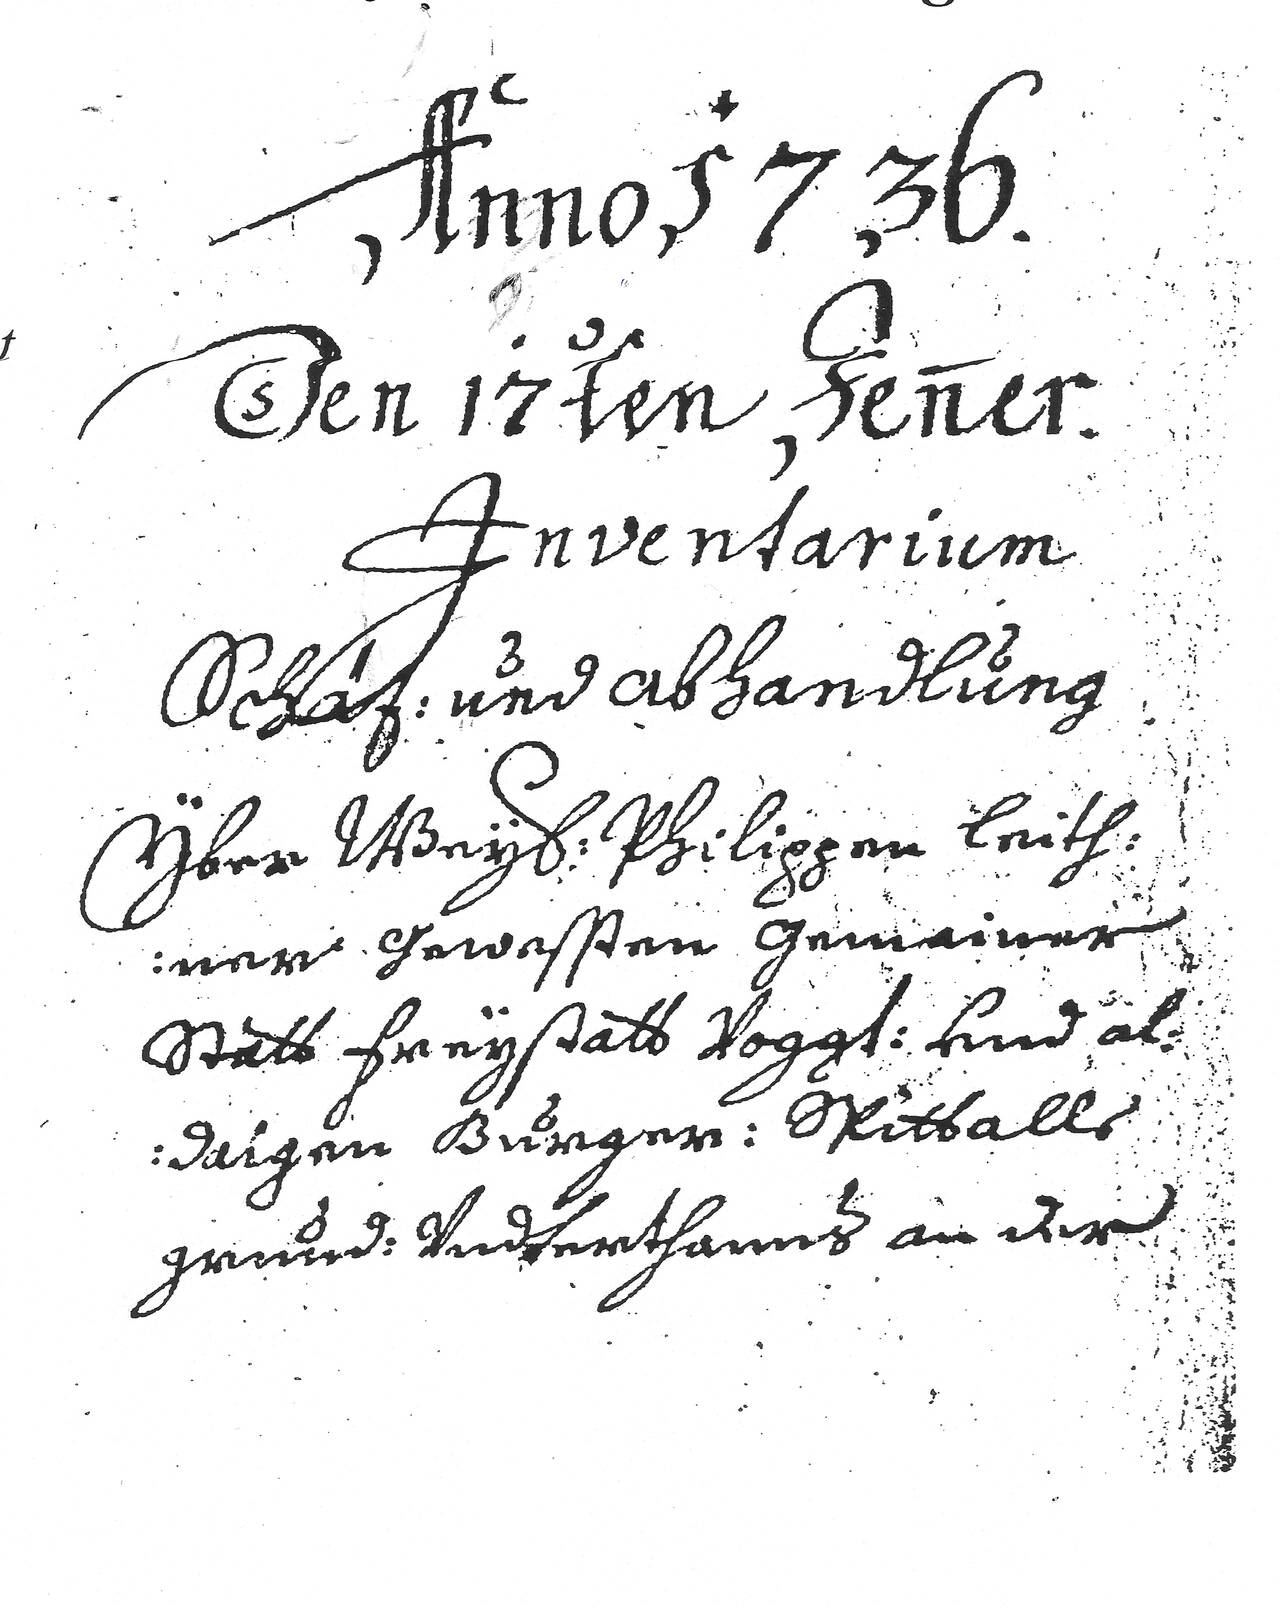 Anno 1736.
Den 17ten Jeñer.
Inventarium
Schäz: und abhandlung
Yber Weyl: Philippen Leith:
:ner gewessten Gemainer
Statt Freystatt Voggt: und al:
:daigen Burger: Spittalls
grund: Vndterthanns an der